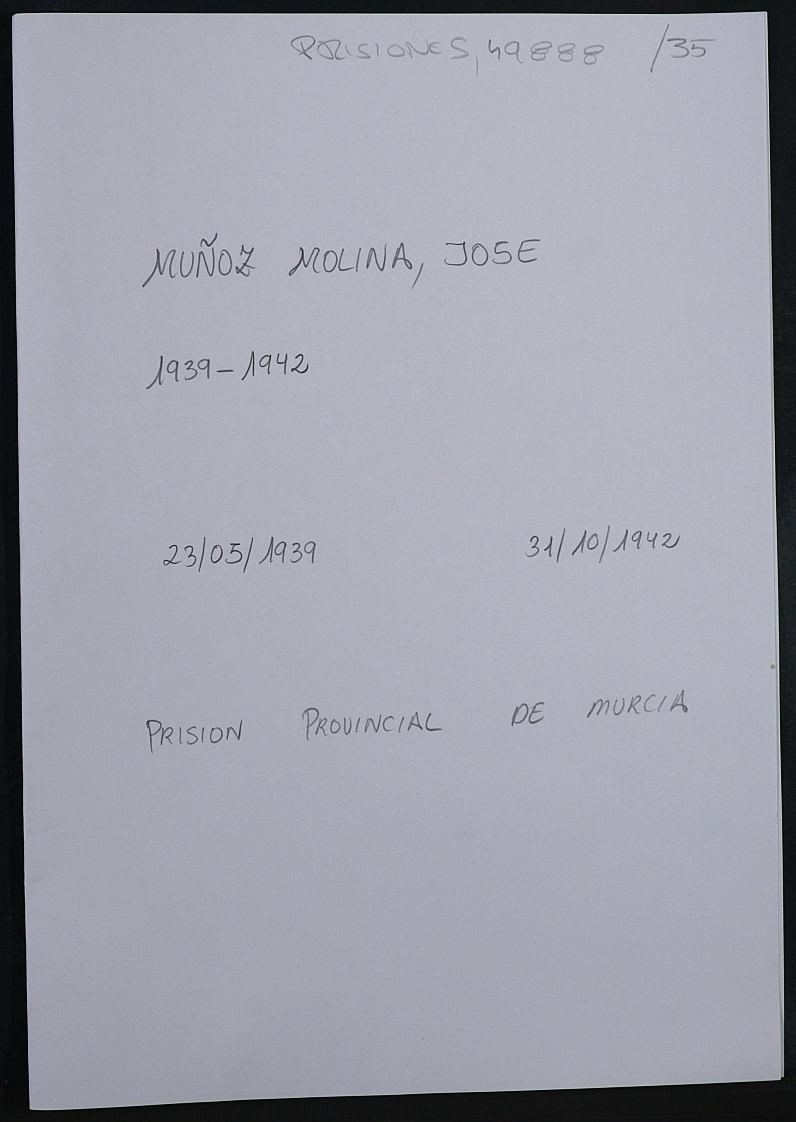 PRISIONES, 49888 /35
MUÑOZ MOLINA, JOSE
1939-1942
23/05/1939 31/10/1942
PRISION PROVINCIAL DE MURCIA